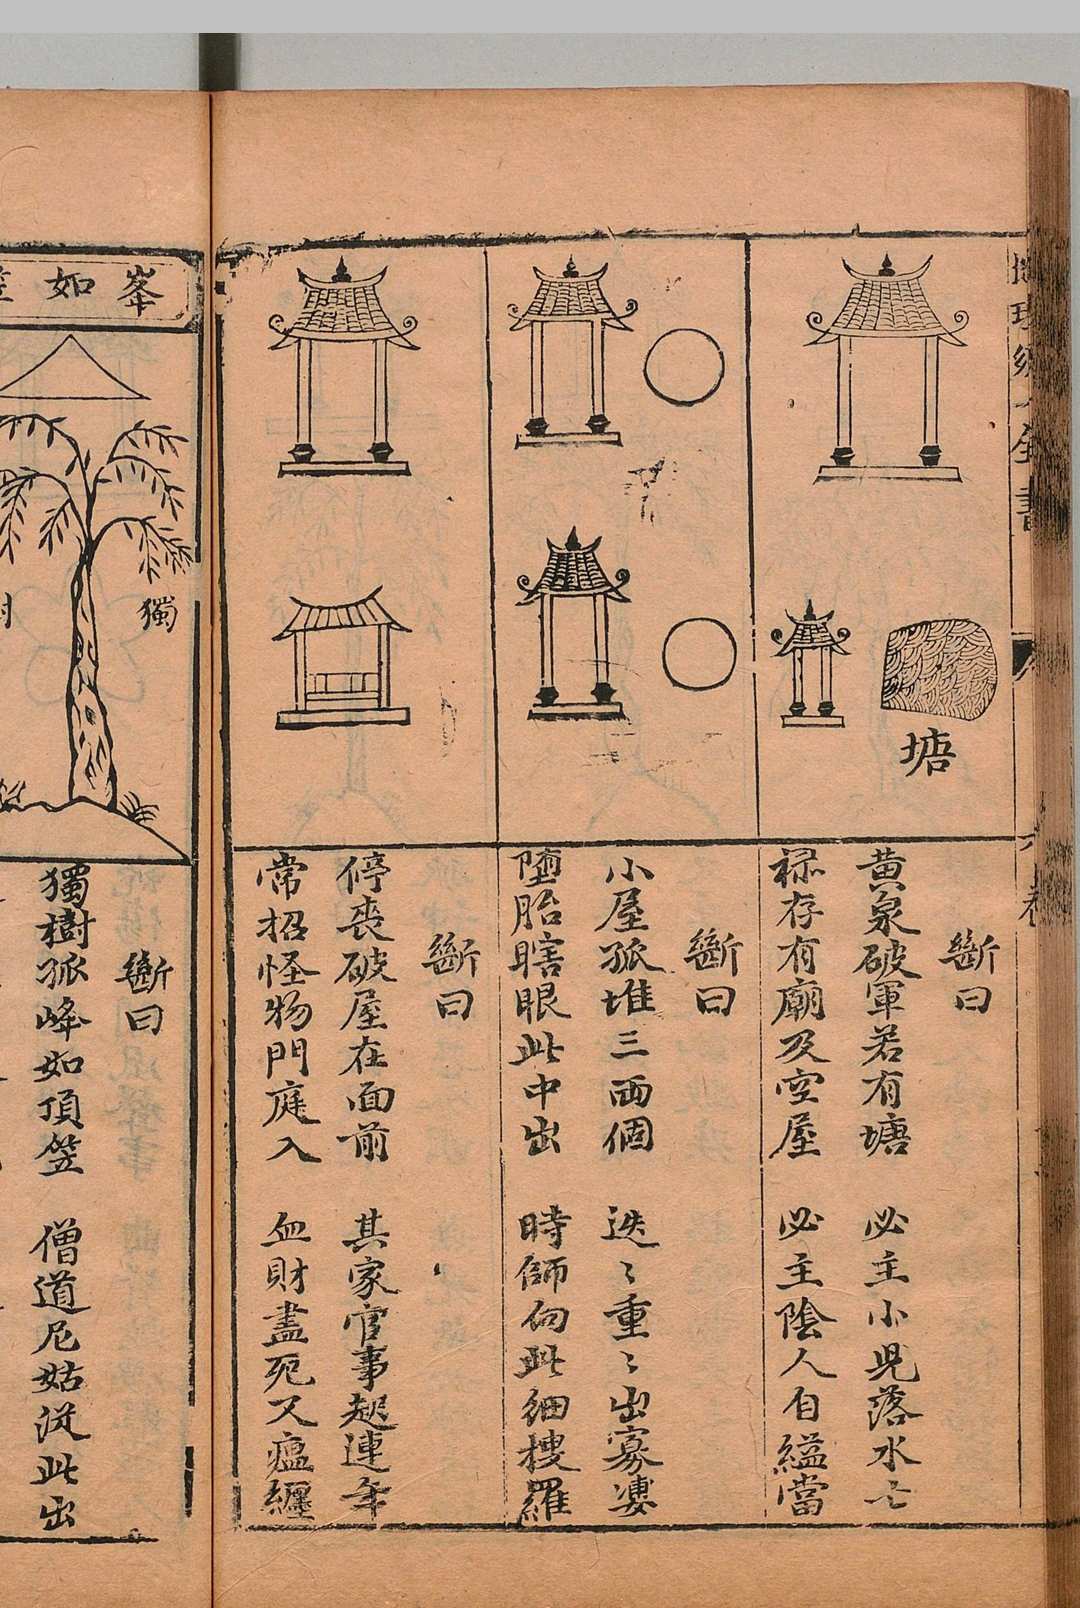 塘
斷曰
黄泉破軍若有塘　必主小児落水亡
禄存有廟及空屋　必主陰人自縊當
斷曰
小屋孤堆三兩個　迭〻重〻出寡婆
墮胎瞎眼此中出　時師向此細搜羅
斷曰
停喪破屋在面前　其家官事起連年
常招怪物門庭入　血財盡死又瘟纏
峯如
獨
斷曰
獨樹孤峰如頂笠　僧道尼姑從此出